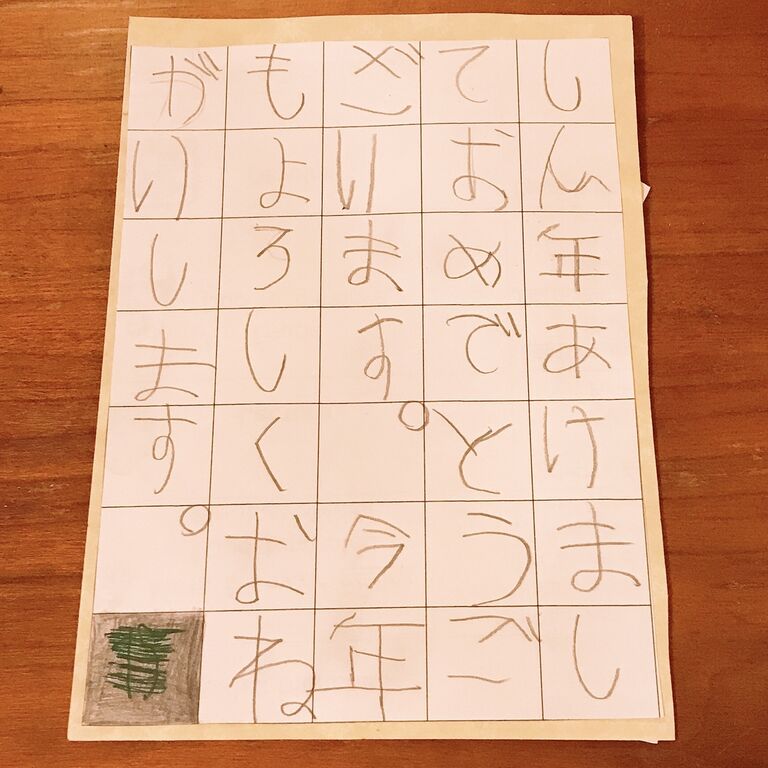 しん年あけまし
ておめでとうご
ざいます。今年
もよろしくおね
がいします。